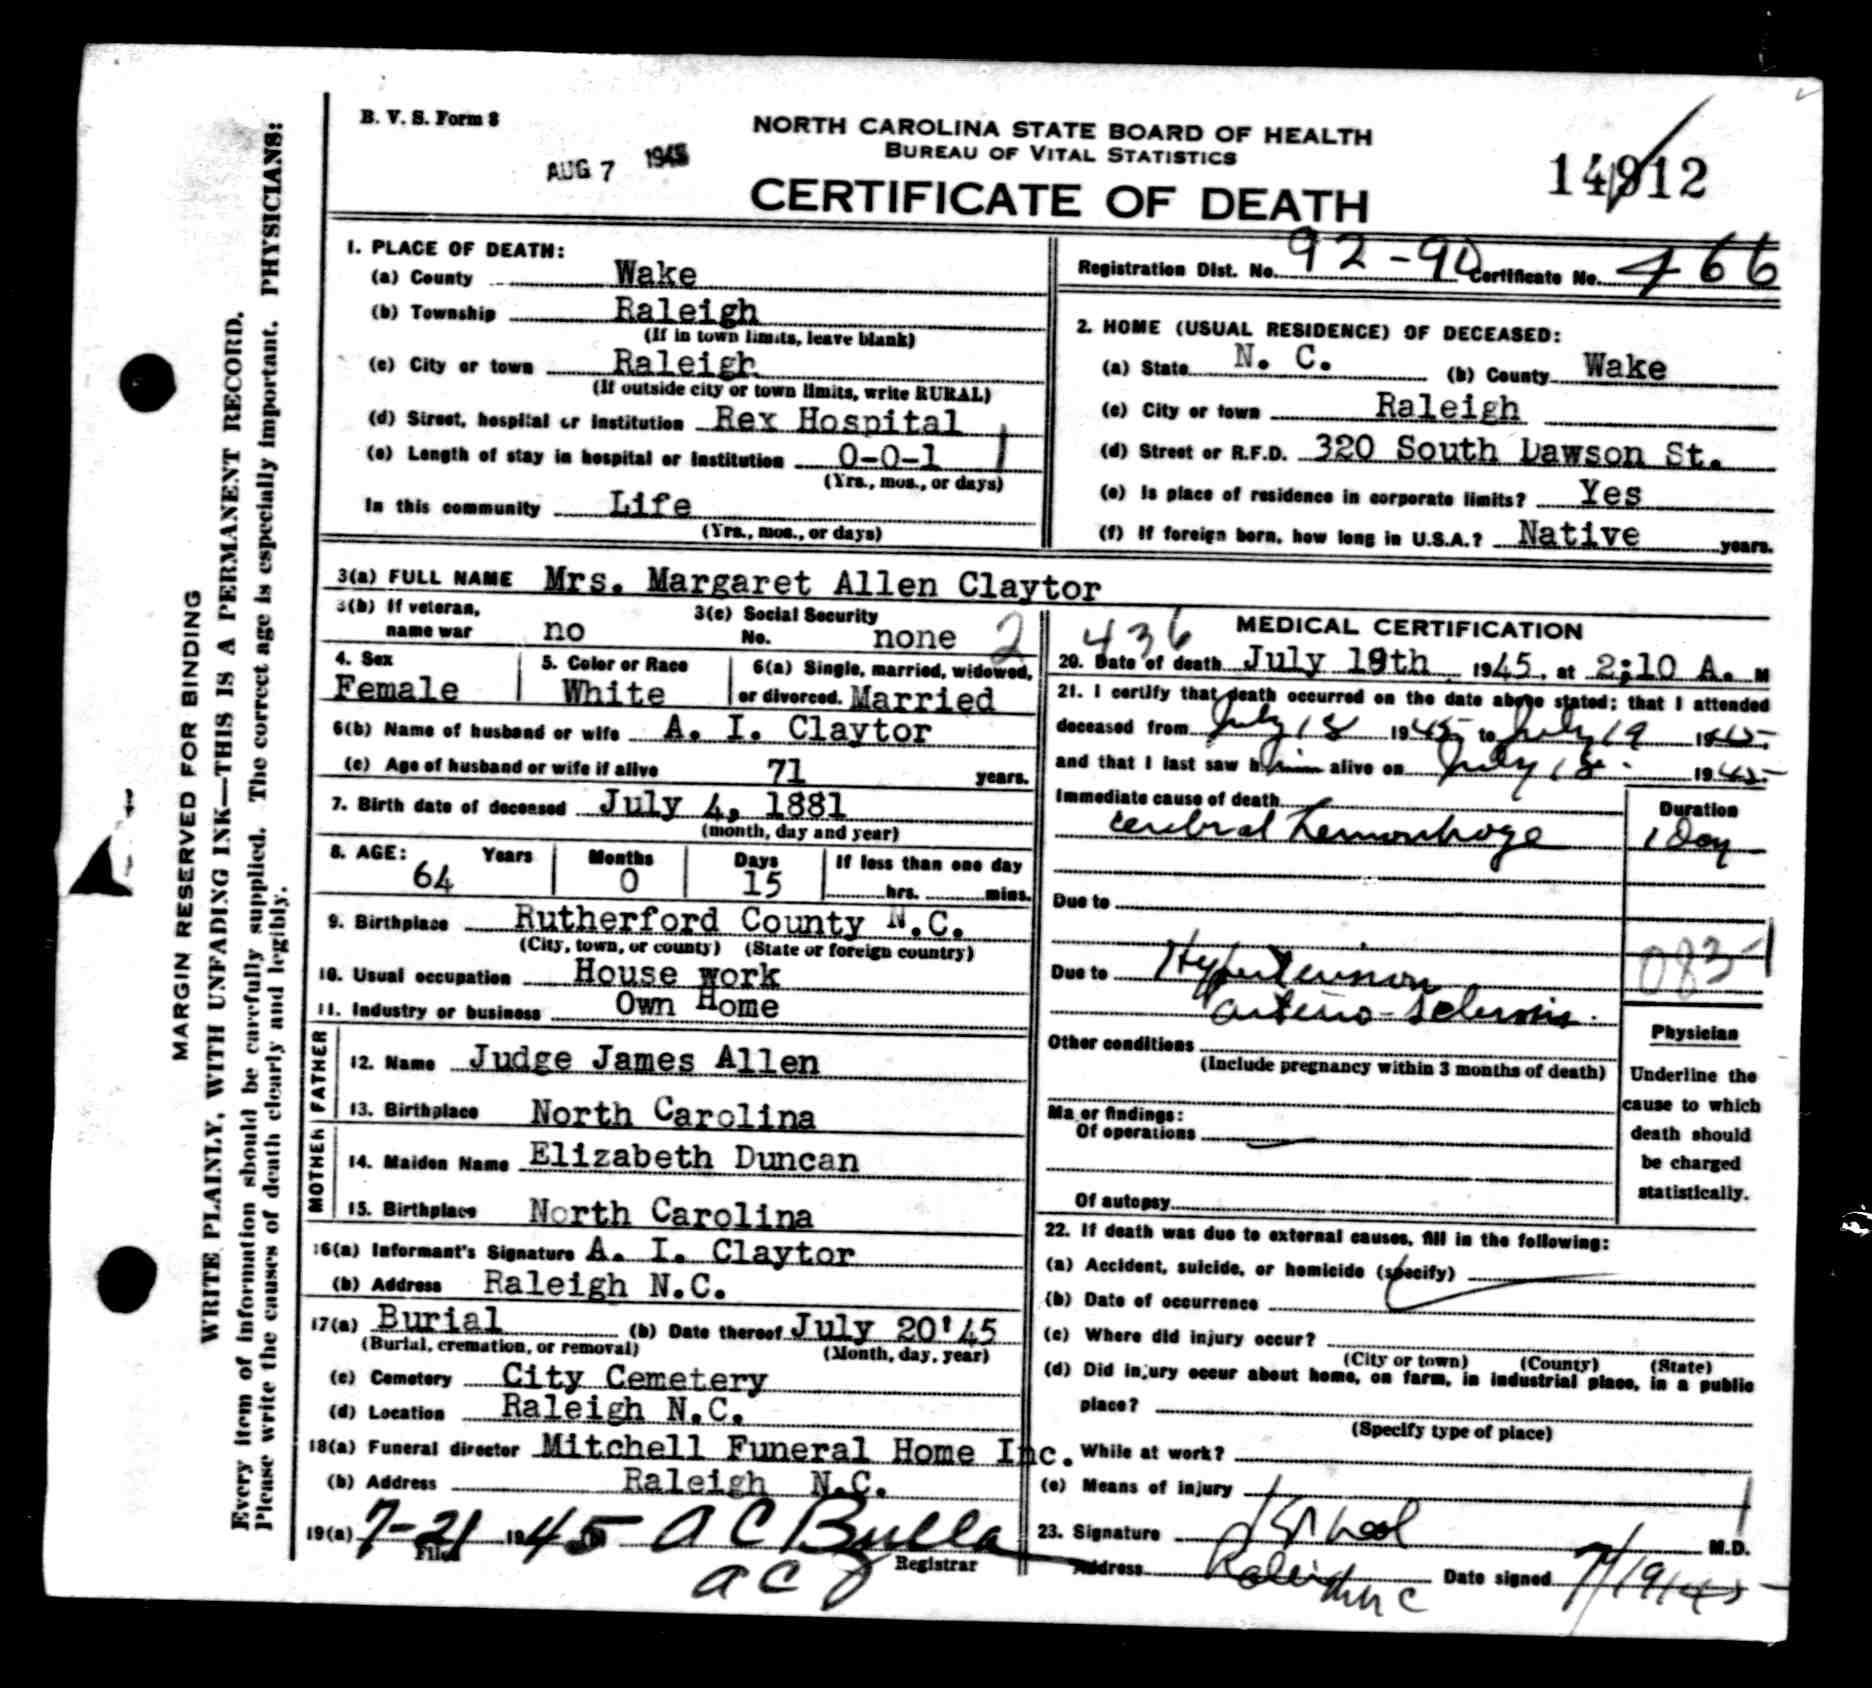 B. V. S. Form 8
NORTH CAROLINA STATE BOARD OF HEALTH
BUREAU OF VITAL STATISTICS
AUG 7 1945
CERTIFICATE OF DEATH
14912
MARGIN RESERVED FOR BINDING
WRITE PLAINLY, WITH UNFADING INK—THIS IS A PERMANENT RECORD.
Every item of information should be carefully supplied. The correct age is especially important. PHYSICIANS:
Please write the causes of death clearly and legibly.
Registration Dist. No. 92-90 Certificate No. 466
1. PLACE OF DEATH:
(a) County Wake
(b) Township Raleigh
(If in town limits, leave blank)
(c) City or town Raleigh
(If outside city or town limits, write RURAL)
(d) Street, hospital or institution Rex Hospital
(e) Length of stay in hospital or institution 0-0-1
(Yrs., mos., or days)
In this community Life
(Yrs., mos., or days)
2. HOME (USUAL RESIDENCE) OF DECEASED:
(a) State N. C. (b) County Wake
(c) City or town Raleigh
(d) Street or R.F.D. 320 South Dawson St.
(e) Is place of residence in corporate limits? Yes
(f) If foreign born, how long in U.S.A.? Native years.
3(a) FULL NAME Mrs. Margaret Allen Claytor
3(b) If veteran, name war no
3(c) Social Security No. none 2
4. Sex Female
5. Color or Race White
6(a) Single, married, widowed, or divorced. Married
6(b) Name of husband or wife A. I. Claytor
(c) Age of husband or wife if alive 71 years.
7. Birth date of deceased July 4, 1881
(month, day and year)
8. AGE: Years 64 Months 0 Days 15 If less than one day hrs. mins.
9. Birthplace Rutherford County N.C.
(City, town, or county) (State or foreign country)
10. Usual occupation House work
11. Industry or business Own Home
FATHER
12. Name Judge James Allen
13. Birthplace North Carolina
MOTHER
14. Maiden Name Elizabeth Duncan
15. Birthplace North Carolina
16(a) Informant's Signature A. I. Claytor
(b) Address Raleigh N.C.
17(a) Burial (b) Date thereof July 20'45
(Burial, cremation, or removal) (Month, day, year)
(c) Cemetery City Cemetery
(d) Location Raleigh N.C.
18(a) Funeral director Mitchell Funeral Home Inc.
(b) Address Raleigh N.C.
19(a) 7-21 1945 A C Bulla
Filed Registrar
a c
436
MEDICAL CERTIFICATION
20. Date of death July 19th 1945, at 2;10 A. M
21. I certify that death occurred on the date above stated; that I attended
deceased from July 18 1945 to July 19 1945,
and that I last saw him alive on July 18 1945
Immediate cause of death Duration
cerebral hemorrhage 1 Day
Due to
Due to Hypertension 083
arterio-sclerosis.
Other conditions
(Include pregnancy within 3 months of death)
Major findings:
Of operations
Of autopsy
Physician
Underline the
cause to which
death should
be charged
statistically.
22. If death was due to external causes, fill in the following:
(a) Accident, suicide, or homicide (specify)
(b) Date of occurrence
(c) Where did injury occur?
(City or town) (County) (State)
(d) Did injury occur about home, on farm, in industrial place, in a public
place?
(Specify type of place)
While at work?
(e) Means of injury
23. Signature M.D.
Address Raleigh N C Date signed 7/19/45